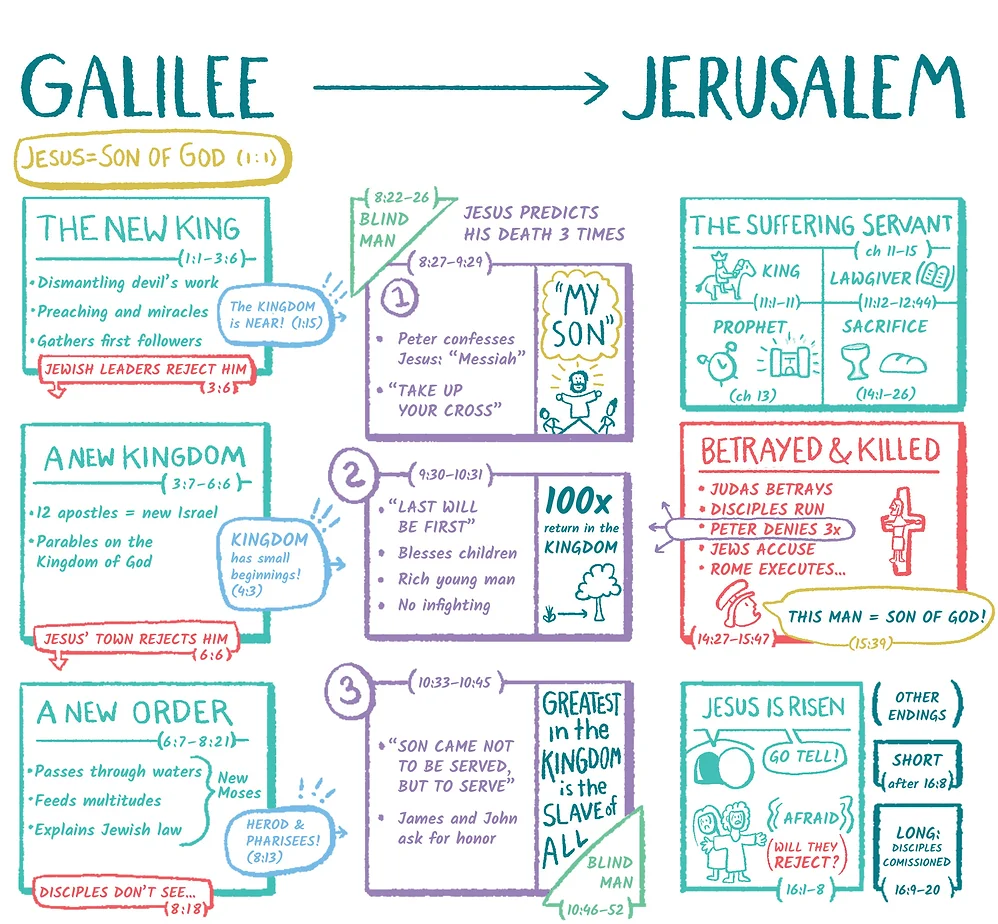 GALILEE
JERUSALEM
JESUS=SON OF GOD (1:1)
THE NEW KING
(1:1-3:6)
•Dismantling devil's work
•Preaching and miracles
•Gathers first followers
The KINGDOM
is NEAR! (1:15)
JEWISH LEADERS REJECT HIM
(3:6)
A NEW KINGDOM
(3:7-6:6)
•12 apostles = new Israel
•Parables on the
Kingdom of God
KINGDOM
has small
beginnings!
(4:3)
JESUS' TOWN REJECTS HIM
(6:6)
A NEW ORDER
(6:7-8:21)
•Passes through waters
•Feeds multitudes
•Explains Jewish law
New
Moses
HEROD &
PHARISEES!
(8:13)
DISCIPLES DON'T SEE...
(8:18)
(8:22-26)
BLIND
MAN
JESUS PREDICTS
HIS DEATH 3 TIMES
(8:27-9:29)
1
• Peter confesses
Jesus: "Messiah"
• "TAKE UP
YOUR CROSS"
"MY
SON"
2
(9:30-10:31)
• "LAST WILL
BE FIRST"
• Blesses children
• Rich young man
• No infighting
100x
return in the
KINGDOM
3
(10:33-10:45)
• "SON CAME NOT
TO BE SERVED,
BUT TO SERVE"
• James and John
ask for honor
GREATEST
in the
KINGDOM
is the
SLAVE of
ALL
BLIND
MAN
(10:46-52)
THE SUFFERING SERVANT
(ch 11-15)
KING
(11:1-11)
LAWGIVER
(11:12-12:44)
PROPHET
(ch 13)
SACRIFICE
(14:1-26)
BETRAYED & KILLED
• JUDAS BETRAYS
• DISCIPLES RUN
• PETER DENIES 3x
• JEWS ACCUSE
• ROME EXECUTES...
THIS MAN = SON OF GOD!
(14:27-15:47)
(15:39)
JESUS IS RISEN
GO TELL!
(AFRAID)
(WILL THEY
REJECT?)
(16:1-8)
(OTHER
ENDINGS)
SHORT
(after 16:8)
LONG:
DISCIPLES
COMISSIONED
(16:9-20)